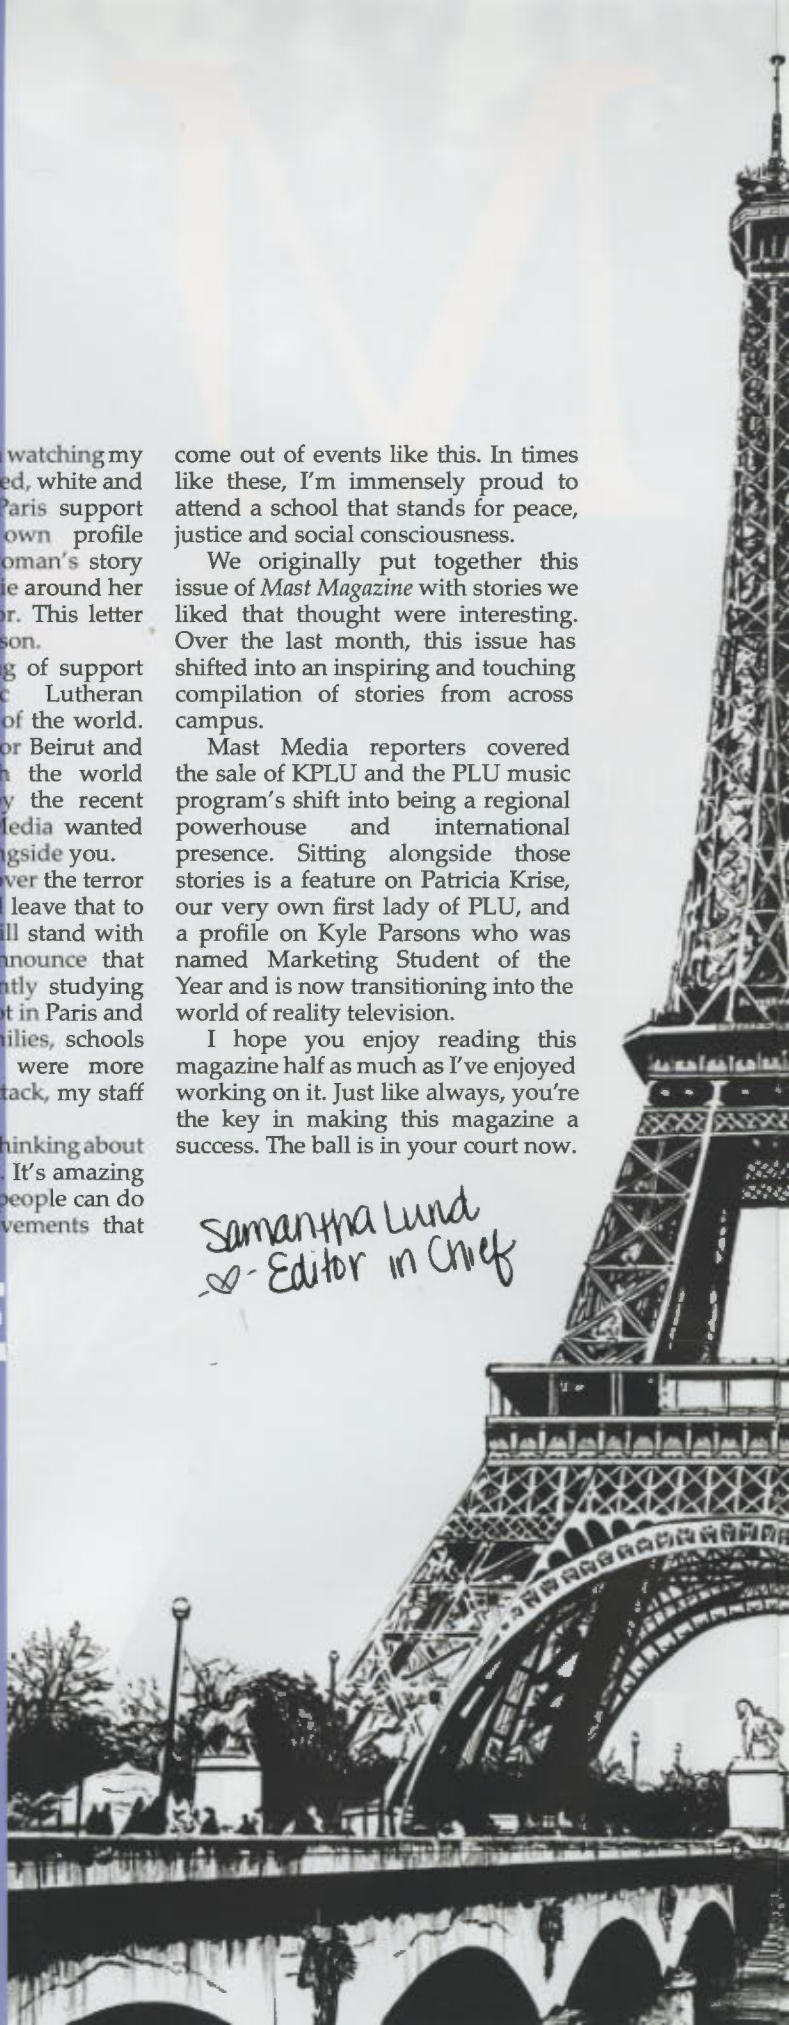 M
watching my
ed, white and
Paris support
own profile
oman's story
ie around her
or. This letter
son.
g of support
c Lutheran
of the world.
or Beirut and
h the world
y the recent
Media wanted
ngside you.
ver the terror
l leave that to
ill stand with
nnounce that
ntly studying
ot in Paris and
nilies, schools
were more
tack, my staff
hinking about
. It's amazing
people can do
vements that
come out of events like this. In times
like these, I'm immensely proud to
attend a school that stands for peace,
justice and social consciousness.
We originally put together this
issue of Mast Magazine with stories we
liked that thought were interesting.
Over the last month, this issue has
shifted into an inspiring and touching
compilation of stories from across
campus.
Mast Media reporters covered
the sale of KPLU and the PLU music
program's shift into being a regional
powerhouse and international
presence. Sitting alongside those
stories is a feature on Patricia Krise,
our very own first lady of PLU, and
a profile on Kyle Parsons who was
named Marketing Student of the
Year and is now transitioning into the
world of reality television.
I hope you enjoy reading this
magazine half as much as I've enjoyed
working on it. Just like always, you're
the key in making this magazine a
success. The ball is in your court now.
Samantha Lund
- Editor in Chief